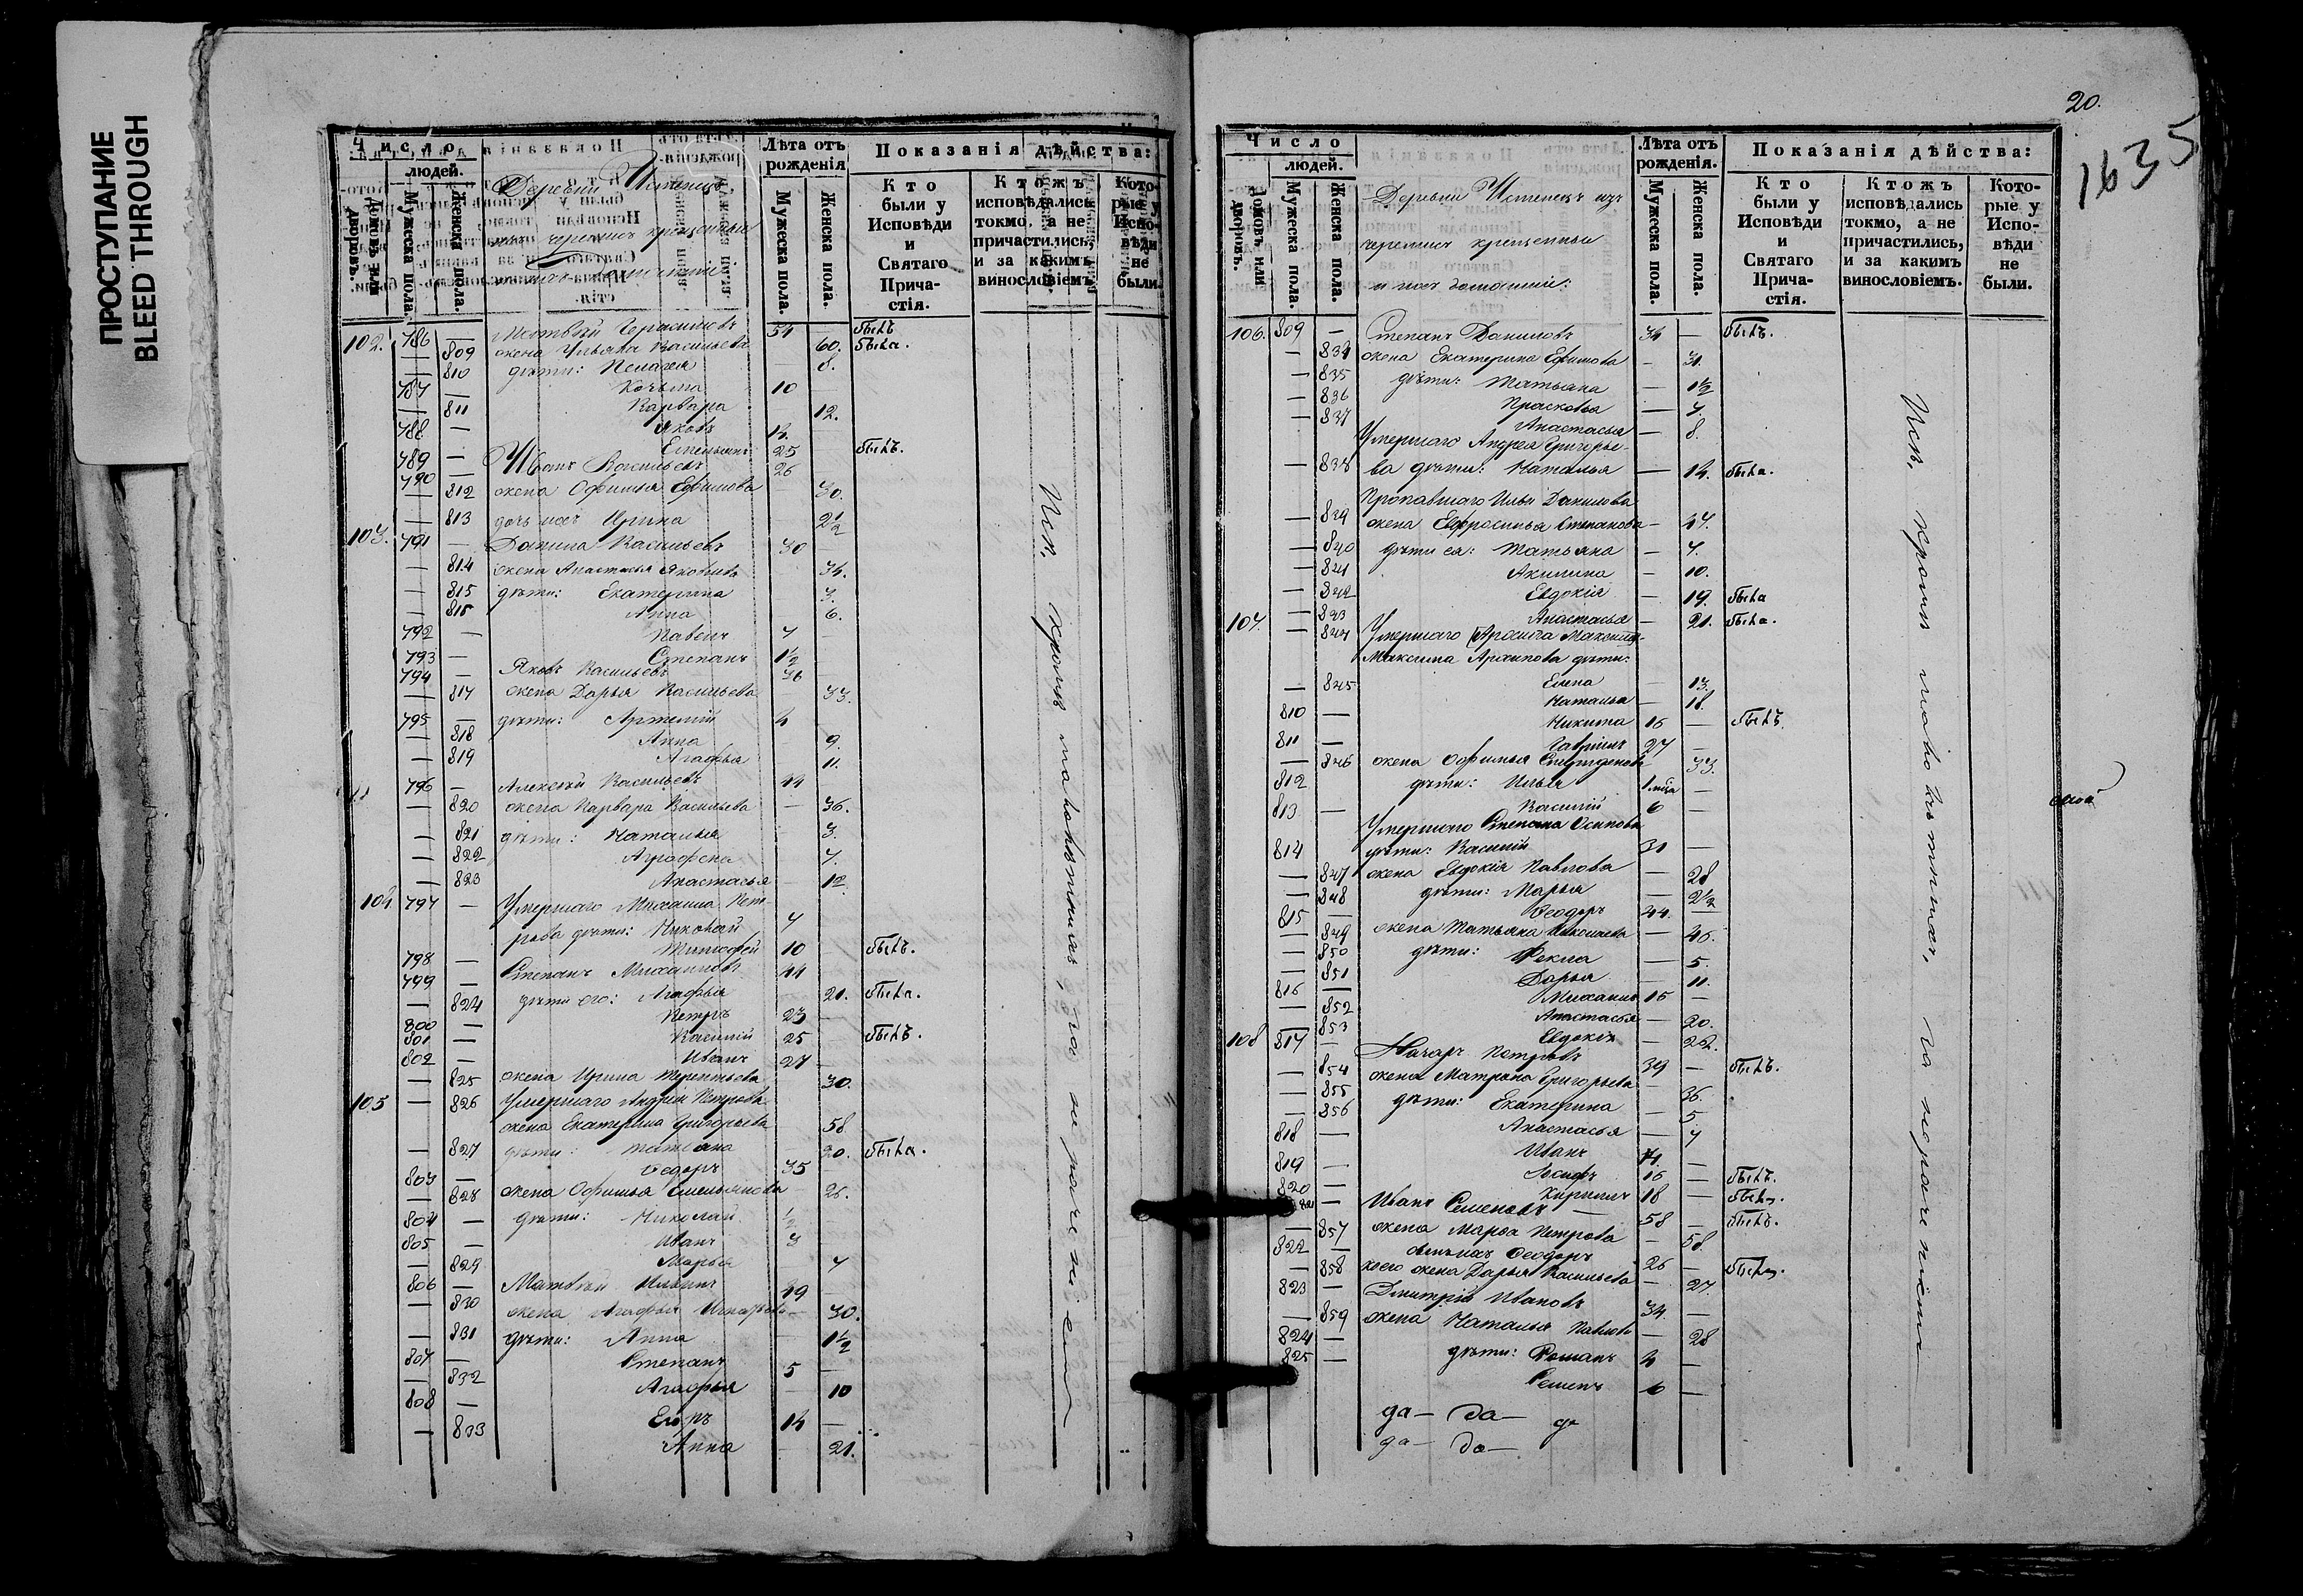 ПРОСТУПАНИЕ
BLEED THROUGH
Число
людей.
Домовъ или дворовъ.
Мужеска пола.
Женска пола.
Деревни
черемисъ крещенныи
Лѣта отъ рожденія
Мужеска пола.
Женска пола.
Показанія дѣйства:
Кто были у Исповѣди и Святаго Прича-стія.
Ктожъ исповѣдались токмо, а не причастились, и за какимъ винословіемъ.
Кото-рые у Испо-вѣди не были.
102. 786 — Матвѣй Герасимовъ 54 — былъ
— 809 жена Ульяна Васильева 60. была.
— 810 дѣти: Пелагея 8.
787 — Козьма 10
— 811 Варвара 12.
788 — Яковъ 14.
789 — Емельянъ 25 былъ.
790 — Иванъ Васильевъ 26
— 812 жена Офимья Ефимова 30.
— 813 дочь ихъ Ирина 2½
103. 791 — Данила Васильевъ 30
— 814 жена Анастасья Яковлева 34.
— 815 дѣти: Екатерина 3.
— 816 Анна 6.
792 — Павелъ 7
793 — Степанъ 1½
794 — Яковъ Васильевъ 36
— 817 жена Дарья Васильева 33.
795 — дѣти: Артемій 4
— 818 Анна 9.
— 819 Агафья 11.
796 — Алексѣй Васильевъ 44
— 820 жена Варвара Васильева — 36.
— 821 дѣти: Наталья 3.
— 822 Аграфена 7.
— 823 Анастасья 12.
104 797 — Умершаго Михаила Пет-
рова дѣти: Николай 7
798 — Тимофей 10 былъ.
799 — Степанъ Михаиловъ 44
— 824 дѣти его: Агафья 21. была.
800 — Петръ 23
801 — Василій 25 былъ.
802 — Иванъ 27
— 825 жена Ирина Терентьева 30.
105 — 826 Умершаго Андрея Петрова
жена Екатерина Григорьева 58
— 827 дѣти: Татьяна 20. была.
803 — Ѳедоръ 35
— 828 жена Офимья Емельянова 26.
804 — дѣти: Николай ½
805 — Иванъ 3
— 829 Марья 7
806 — Матвѣй Ильинъ 49
— 830 жена Агафья 30.
— 831 дѣти: Анна 1½
807 — Степанъ 5
— 832 Агафья 10
808 — Егоръ 14
— 833 Анна 21.
Исп. кромѣ малолѣтнихъ,
20.
1635
Число
людей.
Домовъ или дворовъ.
Мужеска пола.
Женска пола.
Деревни изъ
черемисъ крещенныи
и ихъ домашніи:
Лѣта отъ рожденія.
Мужеска пола.
Женска пола.
Показанія дѣйства:
Кто были у Исповѣди и Святаго Прича-стія.
Ктожъ исповѣдались токмо, а не причастились, и за какимъ винословіемъ.
Кото-рые у Испо-вѣди не были.
106. 809 — Степанъ Даниловъ 34 — былъ.
— 834 жена Екатерина Ефимова — 31.
— 835 дѣти: Татьяна — 1½
— 836 Прасковья — 7.
— 837 Анастасья — 8.
Умершаго Андрея Григорье-
— 838 ва дѣти: Наталья — 14. была.
Пропавшаго Ильи Данилова
— 839 жена Евфросинья Степанова — 47.
— 840 дѣти ея: Татьяна — 7.
— 841 Акилина — 10.
— 842 Евдокія — 19. была
— 843 Анастасья — 21. была.
107. — 844 Умершаго
Максима Архипова дѣти:
— 845 Елена — 13.
Наталья — 18.
810 — Никита 16 — былъ.
811 — Гаврилъ 27 —
— 846 жена Офимья 33.
812 дѣти: Илья —
813 — Василій 6 —
Умершаго Степана Осипова
814 дѣти: Василій 31 —
— 847 жена Евдокія Павлова — 28
— 848 дѣти: Марья — 2½
815 — Ѳеодоръ 44. —
— 849 жена Татьяна Николаева — 46.
— 850 дѣти: Фекла — 5.
— 851 Дарья — 11.
816 — Михаилъ 15 —
— 852 Анастасья — 20.
— 853 Евдокія — 22.
108 817 — Назаръ Петровъ 39 — былъ.
— 854 жена Матрона Григорьева — 36.
— 855 дѣти: Екатерина — 5
— 856 Анастасья — 7
818 — Иванъ —
819 — Іосифъ 16 — былъ.
820 — Кириллъ 18 — былъ.
821 — Иванъ Семеновъ 58 — былъ.
— 857 жена Марья Петрова — 58.
822 — сынъ ихъ Ѳеодоръ 26 — былъ.
— 858 коего жена Дарья Васильева — 27.
823 — Дмитрій Ивановъ 34. —
— 859 жена Наталья Павлова — 28
824 — дѣти: Романъ 4 —
825 — Семенъ 6 —
Исп. кромѣ малолѣтнихъ,